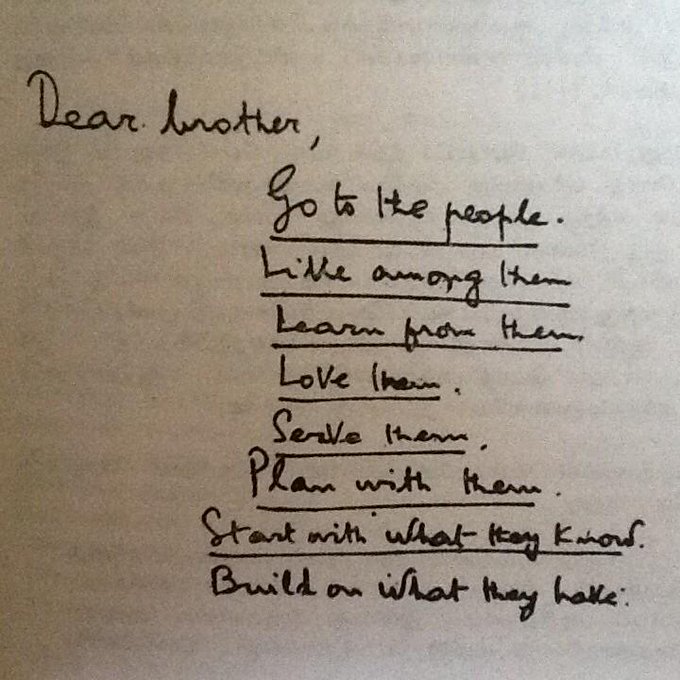 Dear brother,
Go to the people.
Live among them
Learn from them.
Love them.
Serve them.
Plan with them.
Start with what they know.
Build on what they have.